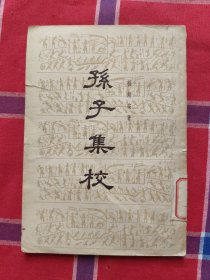 孫子集校